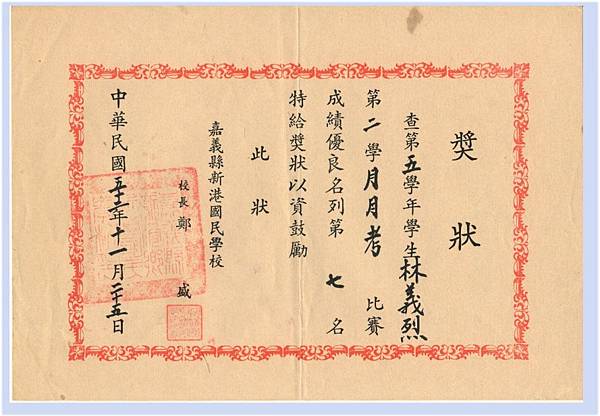 獎狀
查第五學年學生林義烈
第二學月月考比賽
成績優良名列第七名
特給獎狀以資鼓勵
此狀
嘉義縣新港國民學校
校長鄭盛
中華民國五十三年十一月二十五日